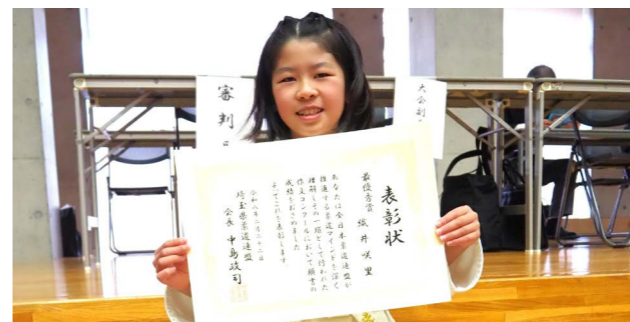 審判
大会副
表彰状
最優秀賞 織井咲里
あなたは全日本柔道連盟が
推進する柔道マインドを深く
理解しその一環として行われた
作文コンクールにおいて頭書の
成績をおさめました
よってこれを表彰します
令和六年二月二十二日
埼玉県柔道連盟
会長 中島政司